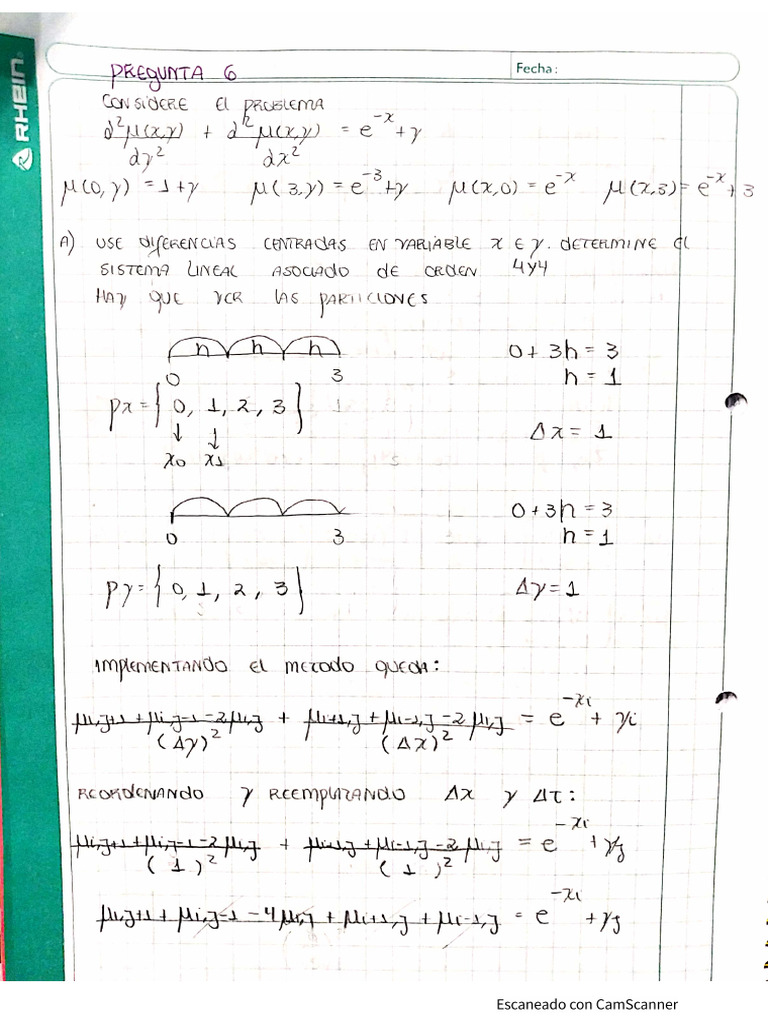 RHEIN
Fecha:
PREGUNTA 6
CONSIDERE El PROBLEMA
d²μ(x,y)/dy² + d²μ(x,y)/dx² = e^-x + y
μ(0,y) = 1+y μ(3,y) = e^-3 + y μ(x,0) = e^-x μ(x,3) = e^-x + 3
A) USE DIFERENCIAS CENTRADAS EN VARIABLE X E Y. DETERMINE El
SISTEMA LINEAL ASOCIADO DE ORDEN 4y4
HAY QUE VER LAS PARTICIONES
h h h
0 3
0 + 3h = 3
h = 1
px = { 0, 1, 2, 3 }
↓ ↓
x0 x1
Δx = 1
0 3
0 + 3h = 3
h = 1
py = { 0, 1, 2, 3 }
Δy = 1
IMPLEMENTANDO El METODO QUEDA:
(μi,j+1 + μi,j-1 - 2μi,j)/(Δy)² + (μi+1,j + μi-1,j - 2μi,j)/(Δx)² = e^-xi + yi
REORDENANDO Y REEMPLAZANDO Δx y Δτ:
(μi,j+1 + μi,j-1 - 2μi,j)/(1)² + (μi+1,j + μi-1,j - 2μi,j)/(1)² = e^-xi + yj
μi,j+1 + μi,j-1 - 4μi,j + μi+1,j + μi-1,j = e^-xi + yj
Escaneado con CamScanner